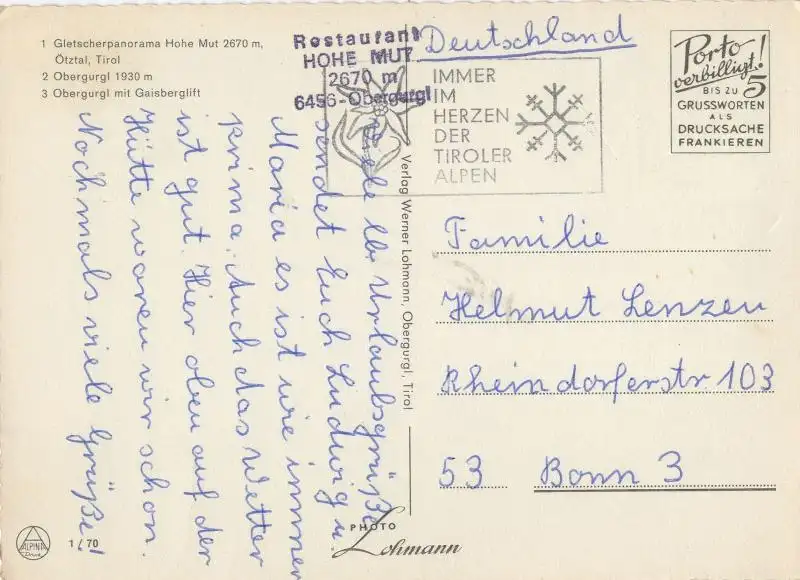 1 Gletscherpanorama Hohe Mut 2670 m,
Ötztal, Tirol
2 Obergurgl 1930 m
3 Obergurgl mit Gaisberglift
Restaurant
HOHE MUT
2670 m
6456-Obergurgl
Deutschland
IMMER
IM
HERZEN
DER
TIROLER
ALPEN
Porto
verbilligt!
BIS ZU 5
GRUSSWORTEN
ALS
DRUCKSACHE
FRANKIEREN
Viele lb. Urlaubsgrüße
sendet Euch Ludwig u.
Maria es ist wie immer
prima. Auch das Wetter
ist gut. Hier oben auf der
Hütte waren wir schon.
Nochmals viele Grüße!
Verlag Werner Lohmann, Obergurgl, Tirol
Familie
Helmut Lenzen
Rheindorferstr 103
53 Bonn 3
PHOTO
Lohmann
ALPINA
Druck
1/70